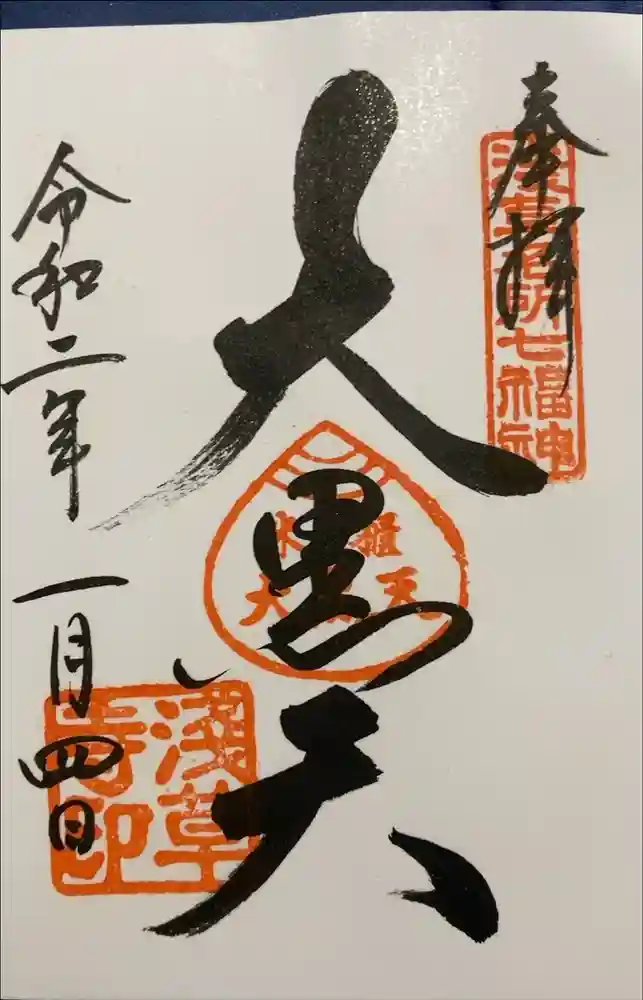 奉拝
浅草名所七福神
大黒天
米櫃
大黒天
浅草
寺印
令和二年 一月四日